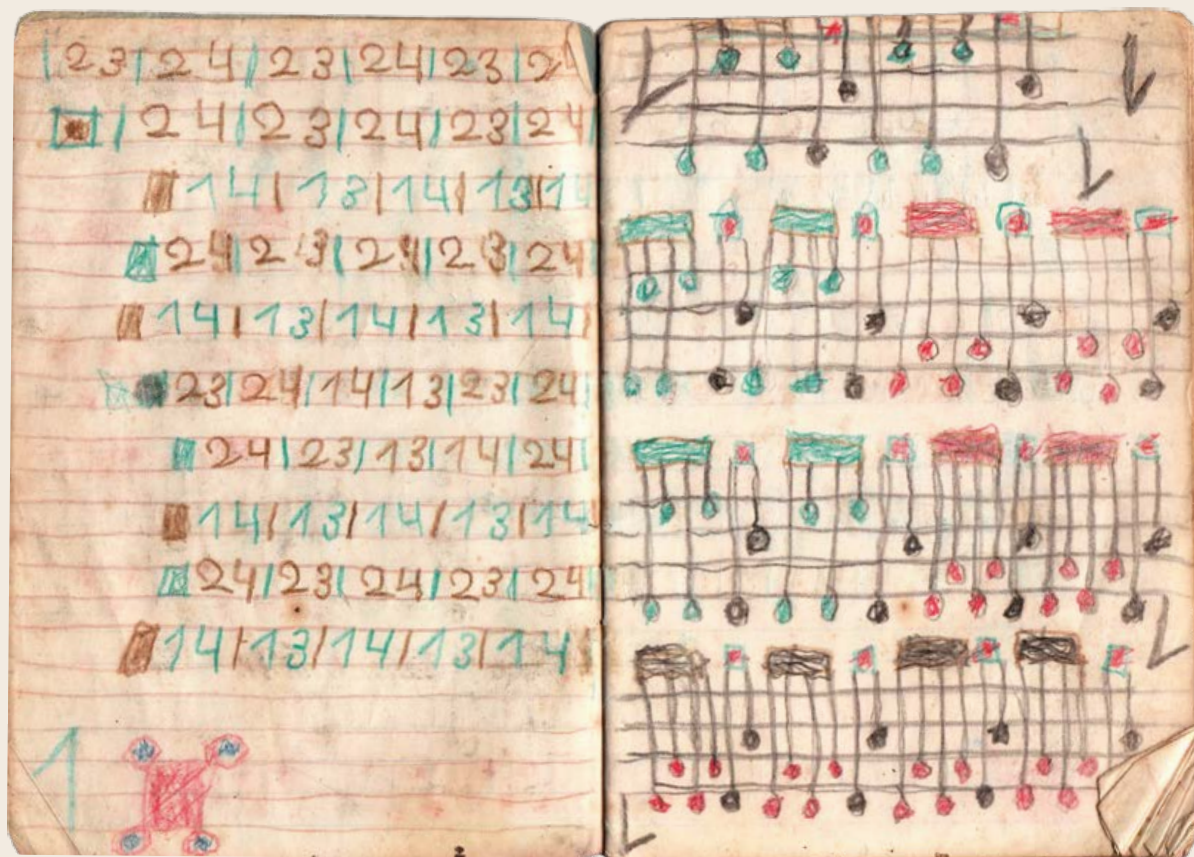 |23|24|23|24|23|2
|24|23|24|23|24
14|13|14|13|1
24|23|24|23|24
14|13|14|13|14
23|24|14|13|23|24
24|23|13|14|24
14|13|14|13|14
24|23|24|23|24
14|13|14|13|14
1